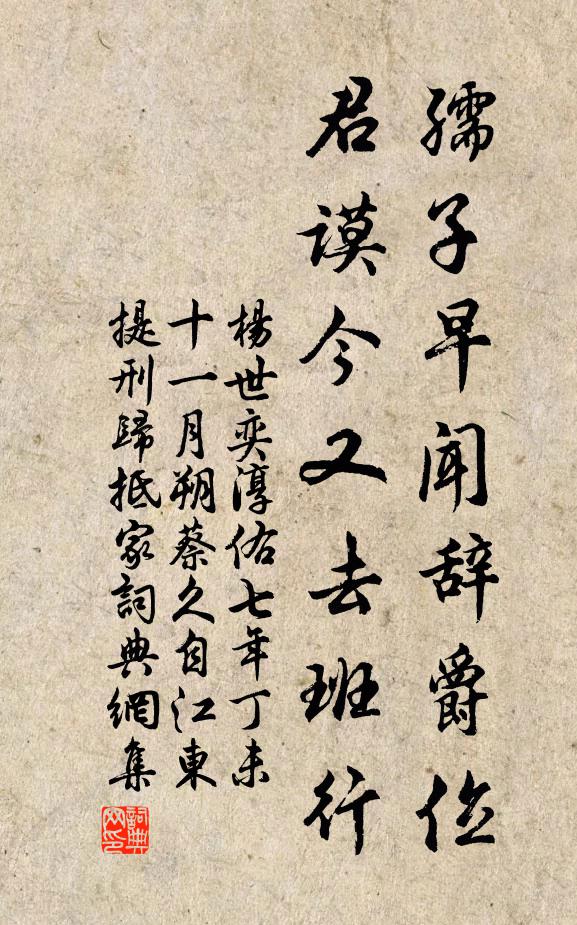 孺子早闻辞爵位
君谟今又去班行
楊世奕淳佑七年丁未
十一月朔蔡久自江東
提刑歸抵家詞典網集
詞典
网印